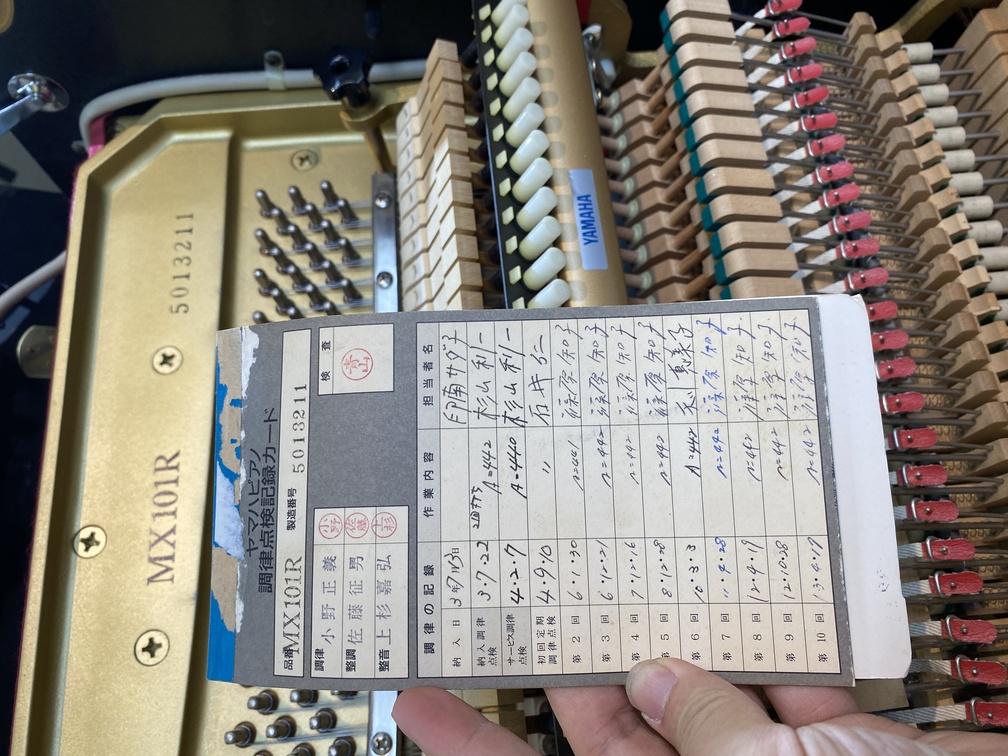 MX101R
5013211
ヤマハピアノ
調律点検記録カード
品番 MX101R 製造番号 5013211
調律 小野正義 小野
整調 佐藤征男 佐藤
整音 上杉嘉弘 上杉
検査
青山
調律の記録 作業内容 担当者名
納入日 3年7月13日
納入調律点検 3・7・22 A=442 杉山利一
サービス調律点検 4・2・7 A=440 杉山利一
初回定期調律点検 4・9・10 〃 石井仁
第2回 6・1・30 A=441 篠原知子
第3回 6・12・21 A=442 篠原知子
第4回 7・12・16 A=442 篠原知子
第5回 8・12・28 A=442 篠原知子
第6回 10・3・3 A=442
第7回 〃・4・28 篠原知子
第8回 12・4・19 A=442 篠原知子
第9回 12・10・28 A=442 篠原知子
第10回 13・4・17 A=442 篠原知子
YAMAHA